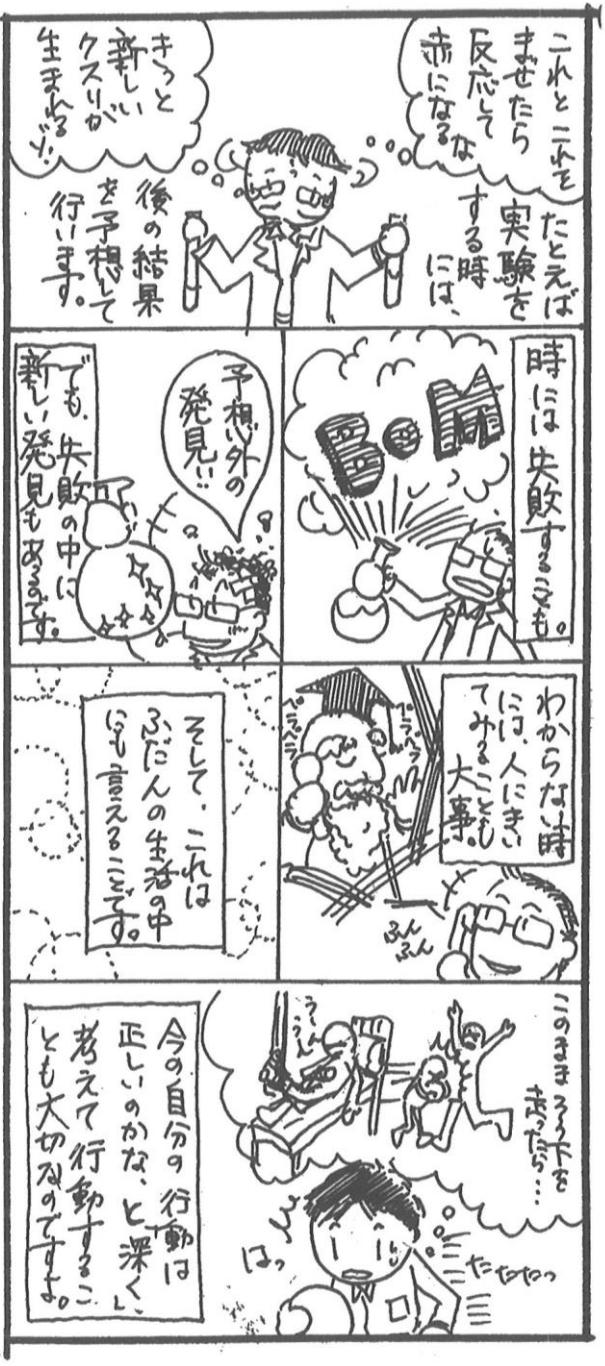 これとこれを
ませたら
反応して
赤になるな
たとえば
実験を
する時
には、
きっと
新しい
クスリが
生まれるゾ!
後の結果
を予想して
行います。
時には失敗することも。
BOM
予想外の
発見!!
でも、失敗の中に
新しい発見もあるのです。
わからない時
には、人にきい
てみることも
大事。
ペラペラ
ペラペラ
ふん
ふん
そして、これは
ふだんの生活の中
にも言えることです。
このままろう下を
走ったら…
う〜ん
う〜ん
はっ
たたたたっ
今の自分の行動は
正しいのかな、と深く、
考えて行動するこ
とも大切なのですよ。